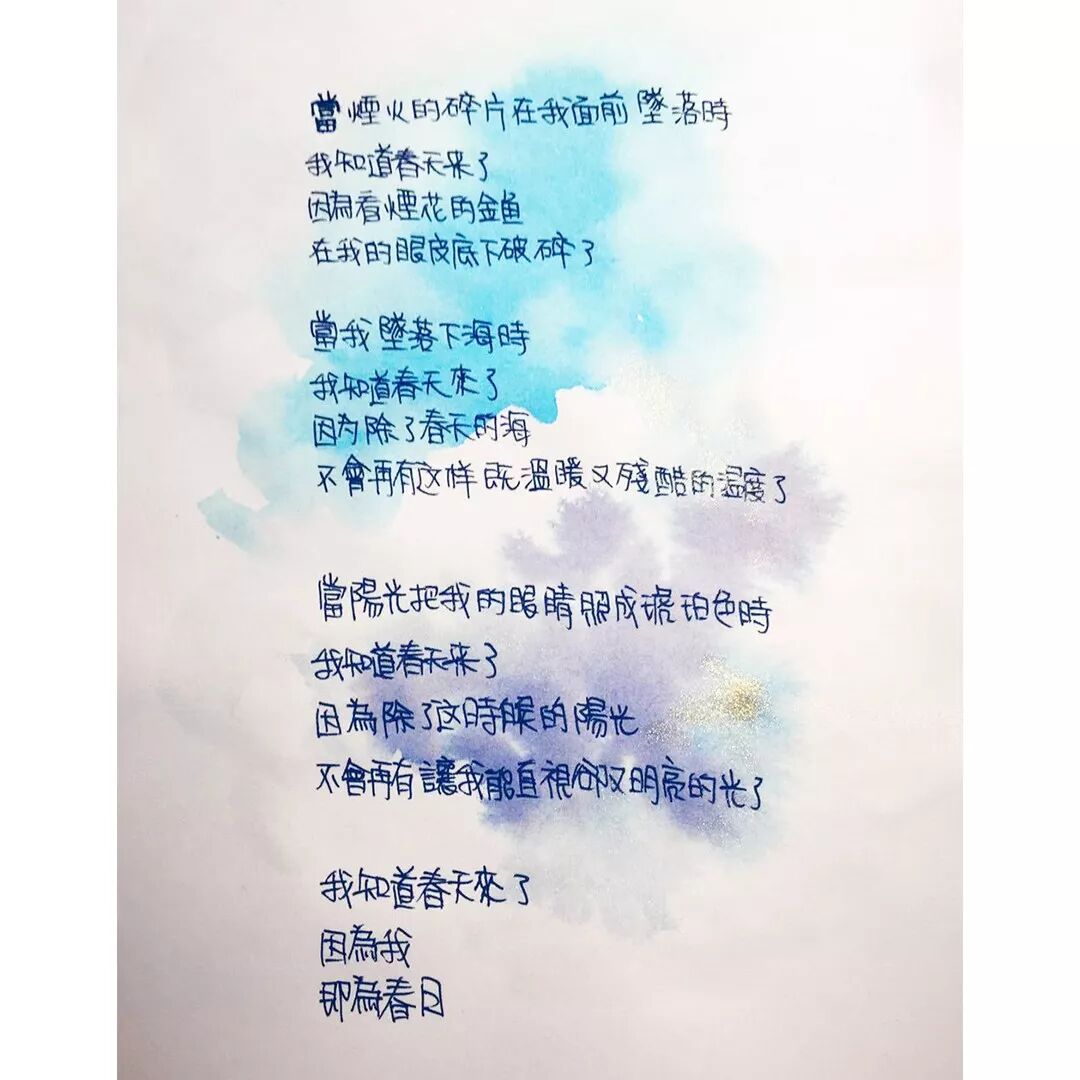 當煙火的碎片在我面前墜落時
我知道春天来了
因為看煙花的金鱼
在我的眼皮底下破碎了
當我墜落下海時
我知道春天來了
因为除了春天的海
不會再有这样既溫暖又殘酷的温度了
當陽光把我的眼睛照成琥珀色時
我知道春天来了
因為除了这時候的陽光
不會再有讓我能直視卻又明亮的光了
我知道春天來了
因為我
即為春日